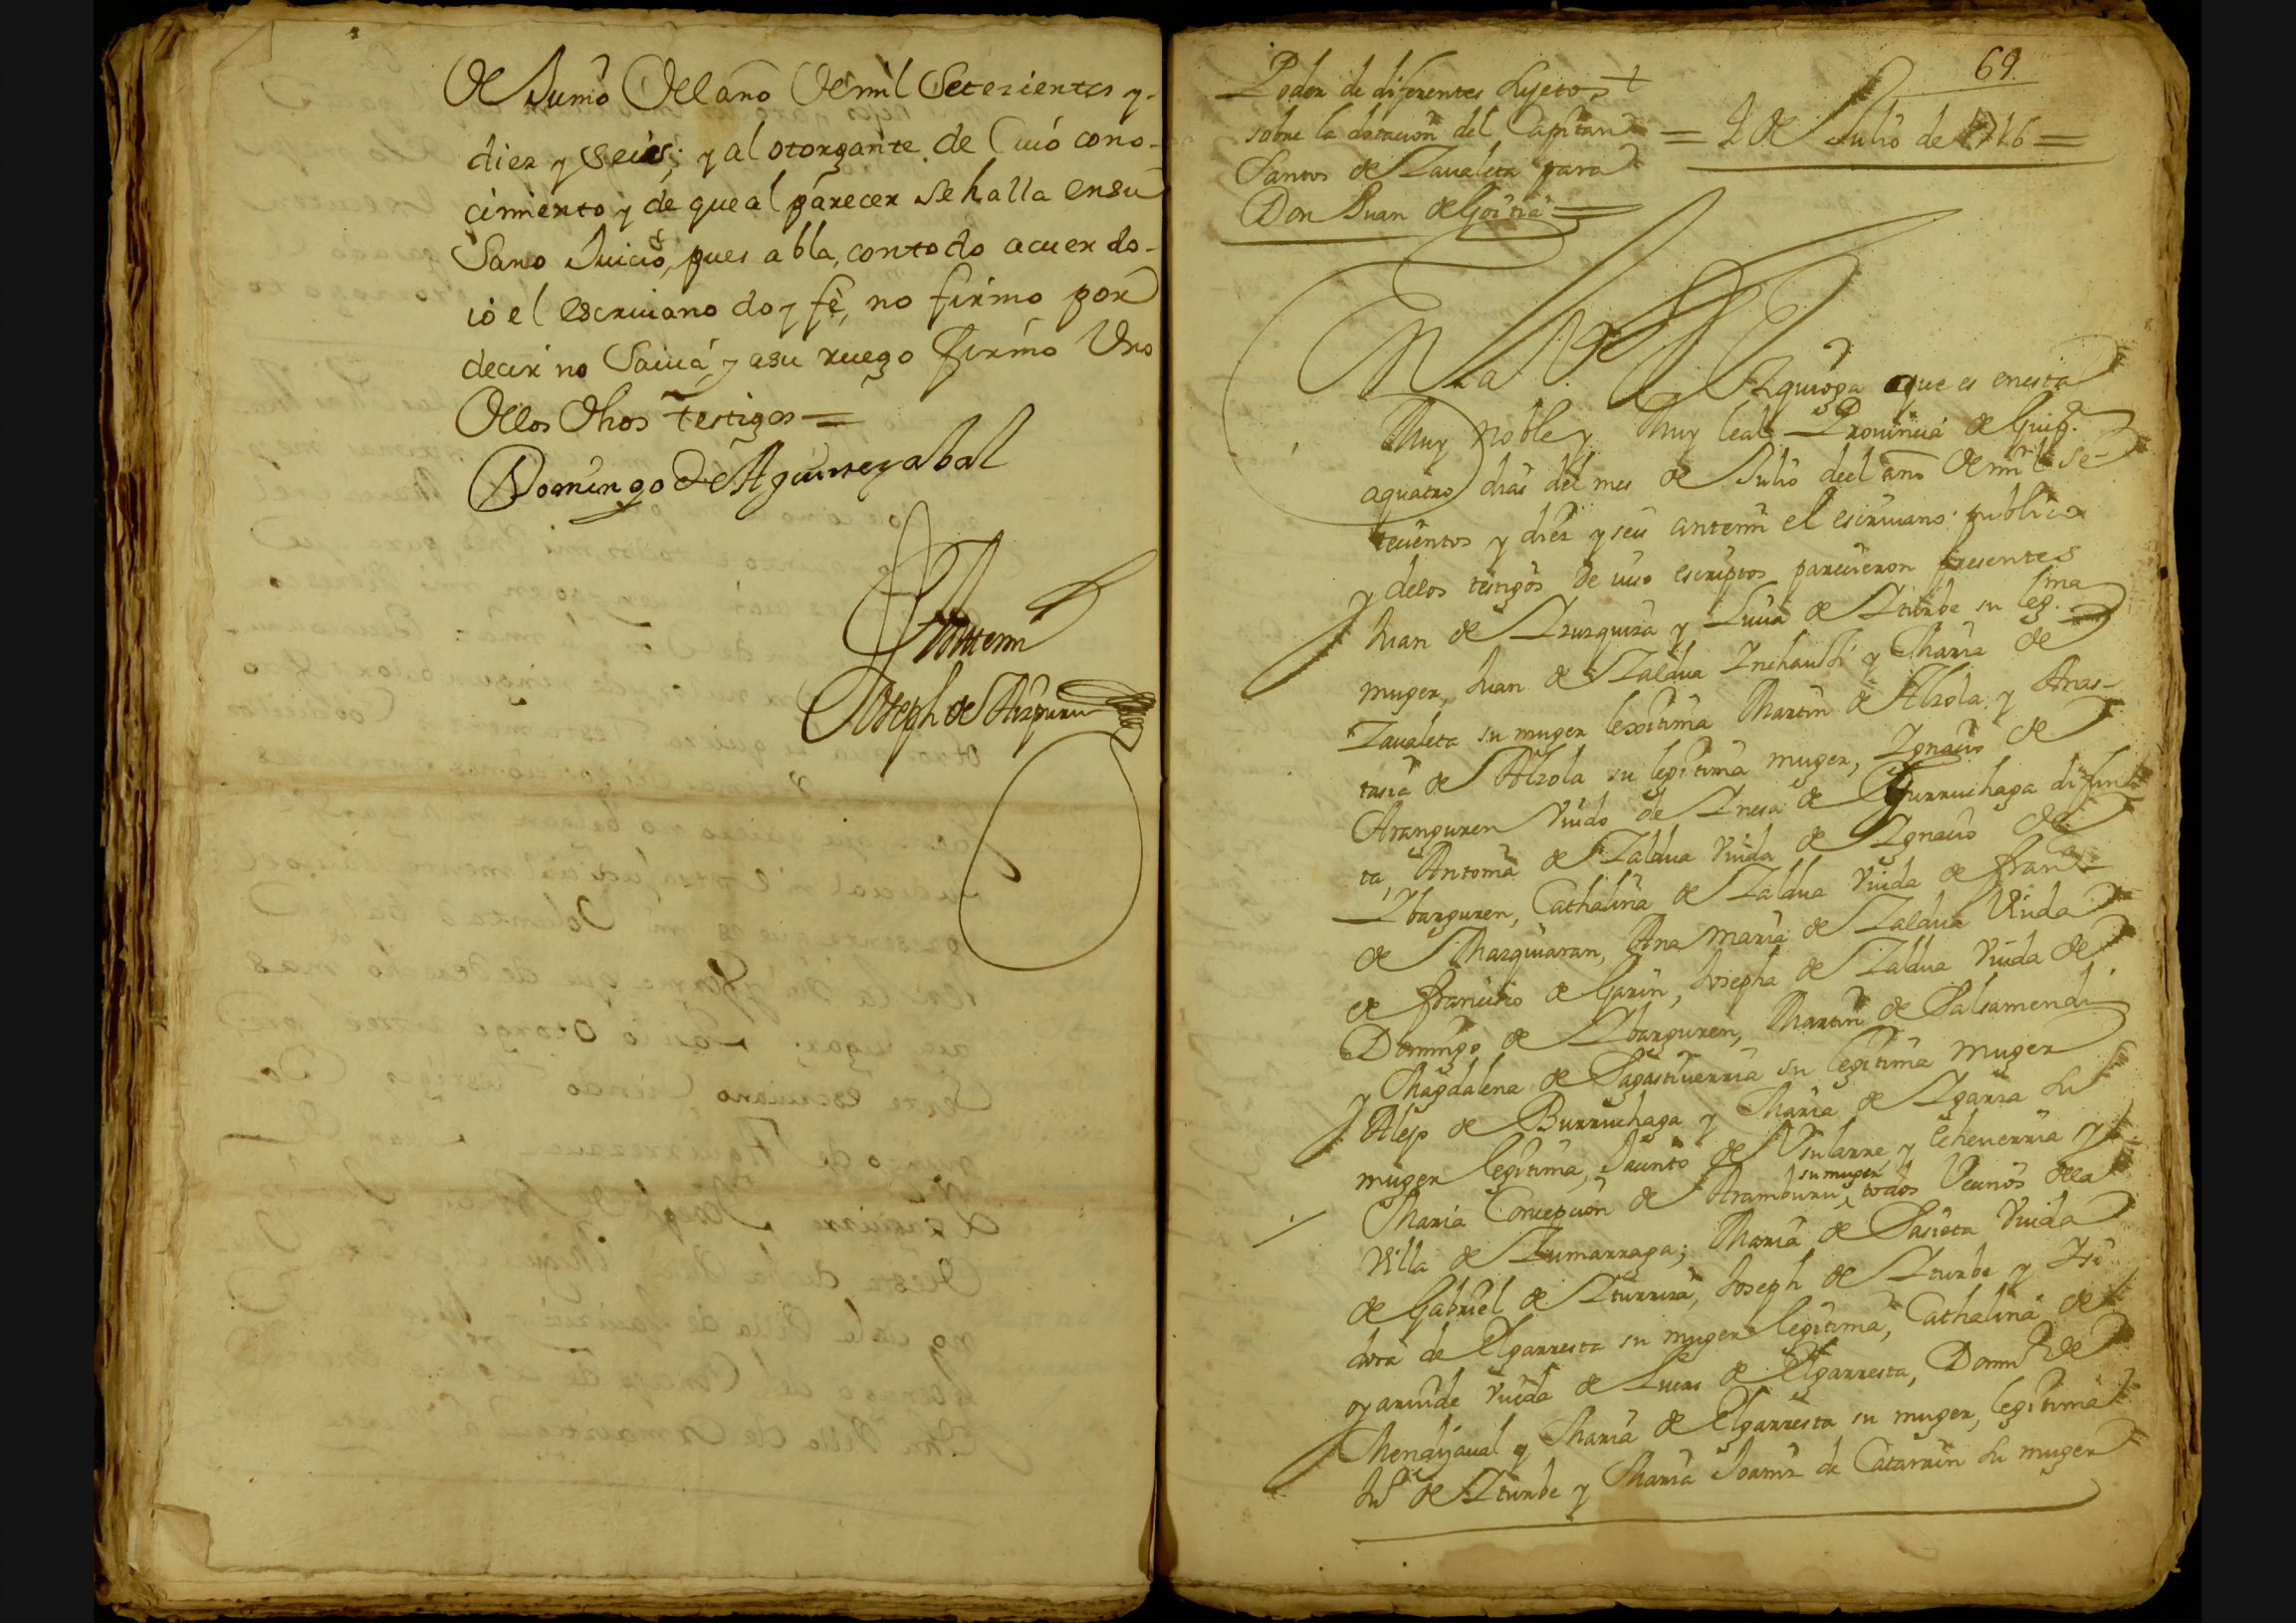 de Junio del año de mil setezientos y
diez y seis; y al otorgante de cuio cono-
cimiento y de que al parecer se halla en su
sano Juicio, pues abla, con todo acuerdo
io el escriuano doy fè, no firmo por
decir no sauia, y a su ruego firmo Uno
de los dhos testigos =
Domingo de Aguirrezabal
Ante mi
Joseph de Aizpuru
69
Poder de diferentes Sujetos
sobre la dotacion del Capitan
Santos de Zaualeta para
Don Juan de Goitia =
= 4 de Julio de 1716 =
En la V.ª de
Zquioga que es en esta
Muy noble y Muy leal Prouincia de Guip.ª
a quatro dias del mes de Julio deel año de mil se-
tecientos y diez y seis ante mi el escriuano publico
y de los testigos de iuso escriptos parecieron presentes
Juan de Yzuzquiza y Lucia de Yturbe su leg.ma
muger, Juan de Zaldua Inchausti y Maria de
Zaualeta su muger lexitima Martin de Alzola y Anas-
tasia de Alzola su legitima muger, Ygnacio de
Aranguren Viudo de Ynesa de Burruchaga difun-
ta, Antonia de Zaldua Viuda de Ygnacio de
Ybarguren, Cathalina de Zaldua Viuda de Fran.co
de Mazquiaran, Ana Maria de Zaldua Viuda
de Francisco de Garin, Josepha de Zaldua Viuda de
Domingo de Ybarguren, Martin de Salsamendi
y Magdalena de Sagastiuerria su legitima muger
Alejo de Burruchaga y Maria de Ygarza su
muger legitima, Jacinto de Usularre y Echeuerria y
Maria Concepcion de Aramburu su muger, todos Vecinos de la
Villa de Zumarraga; Maria de Sasieta Viuda
de Gabriel de Yturriza, Joseph de Yturbe y Ysi
dora de Elgarresta su muger legitima, Cathalina de
oyaruide Viuda de Lucas de Elgarresta, Dom.º de
Mendizaual y Maria de Elgarresta su muger, legitima
Ju.º de Yturbe y Maria Joaniz de Catarain su muger